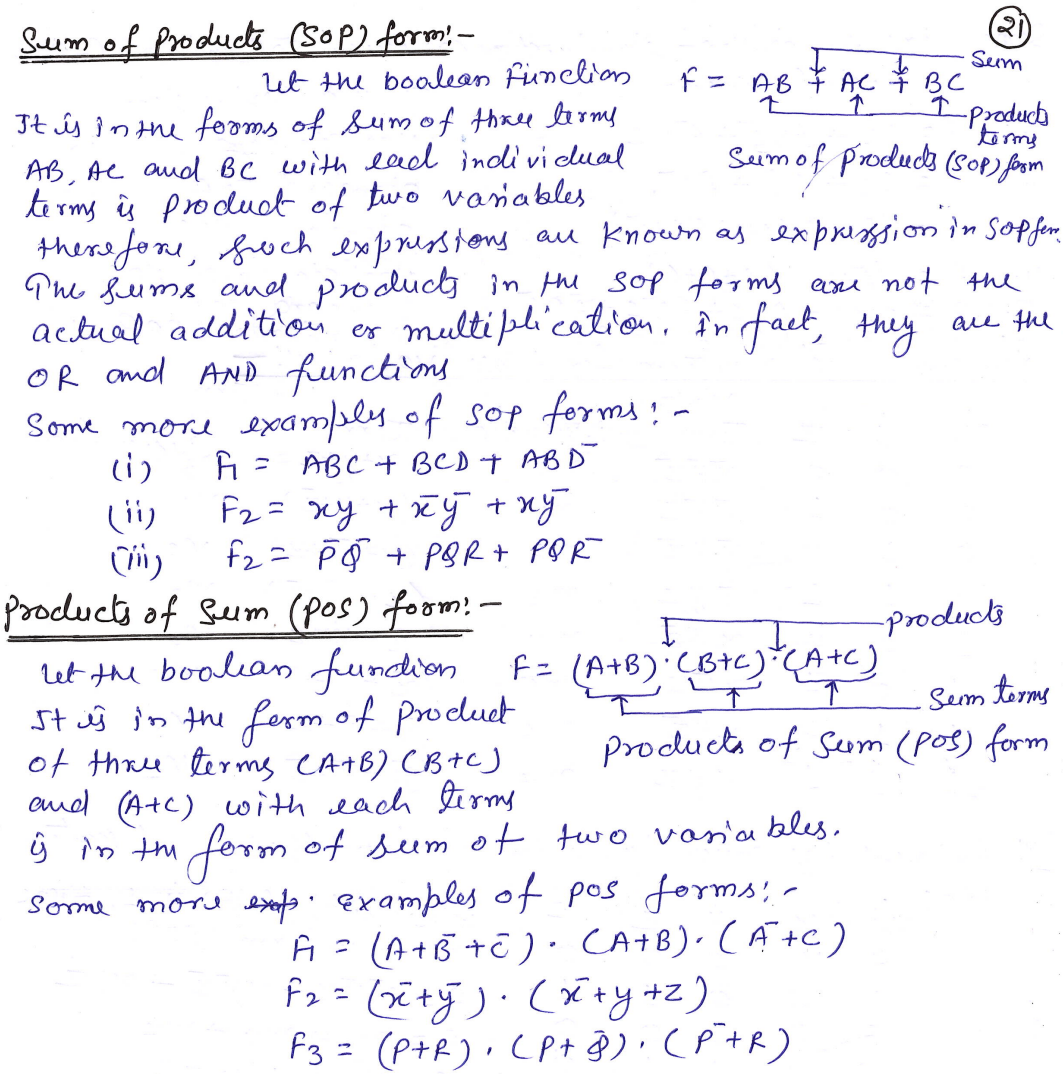 21
Sum of Products (SOP) form:-
Let the boolean Function F = AB + AC + BC
Sum
Products terms
It is in the forms of sum of three terms
AB, AC and BC with each individual
Sum of Products (SOP) form
terms is product of two variables
therefore, such expressions are known as expression in SOP form.
The sums and products in the SOP forms are not the
actual addition or multiplication. In fact, they are the
OR and AND functions
Some more examples of SOP forms:-
(i) F1 = ABC + BCD + ABD̄
(ii) F2 = xy + x̄ȳ + xȳ
(iii) F2 = P̄Q̄ + PQR + PQR̄
Products of Sum (POS) form:-
products
Let the boolean function F = (A+B)·(B+C)·(A+C)
Sum terms
It is in the form of product
Products of Sum (POS) form
of three terms (A+B) (B+C)
and (A+C) with each terms
is in the form of sum of two variables.
Some more exp. examples of POS forms:-
F1 = (A+B̄+C̄)·(A+B)·(Ā+C)
F2 = (x̄+ȳ)·(x̄+y+z)
F3 = (P+R)·(P+Q̄)·(P̄+R)